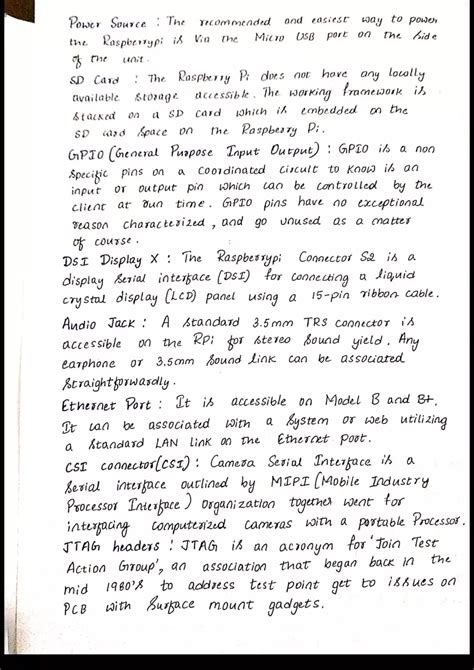 Power Source : The recommended and easiest way to power
the Raspberrypi is Via the Micro USB port on the side
of the unit.
SD Card : The Raspberry Pi does not have any locally
available storage accessible. The working framework is
stacked on a SD card which is embedded on the
SD card space on the Raspberry Pi.
GPIO (General Purpose Input Output) : GPIO is a non
specific pins on a coordinated circuit to know is an
input or output pin which can be controlled by the
client at run time. GPIO pins have no exceptional
reason characterized, and go unused as a matter
of course.
DSI Display X : The Raspberrypi Connector S2 is a
display serial interface (DSI) for connecting a liquid
crystal display (LCD) panel using a 15-pin ribbon cable.
Audio Jack : A standard 3.5mm TRS connector is
accessible on the RPi for stereo sound yield. Any
earphone or 3.5mm sound link can be associated
straightforwardly.
Ethernet Port : It is accessible on Model B and B+.
It can be associated with a system or web utilizing
a standard LAN link on the Ethernet port.
CSI connector(CSI) : Camera Serial Interface is a
Serial interface outlined by MIPI (Mobile Industry
Processor Interface) organization together went for
interfacing computerized cameras with a portable Processor.
JTAG headers : JTAG is an acronym for 'Join Test
Action Group', an association that began back in the
mid 1980's to address test point get to issues on
PCB with surface mount gadgets.